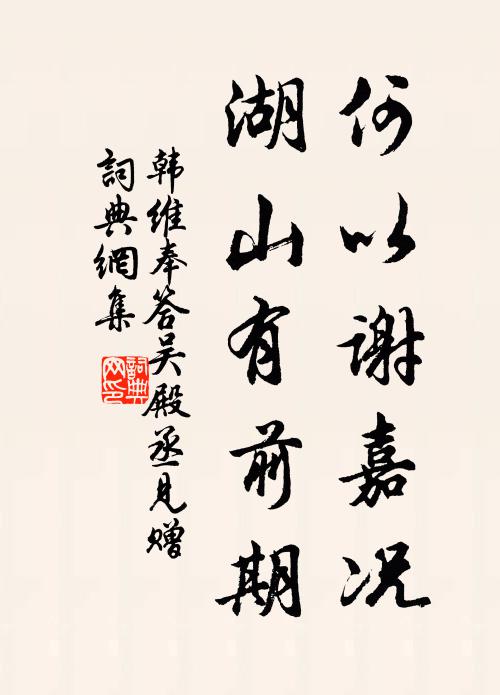 何以谢嘉况
湖山有前期
韩维奉答吴殿丞见赠
词典網集
詞典
网印